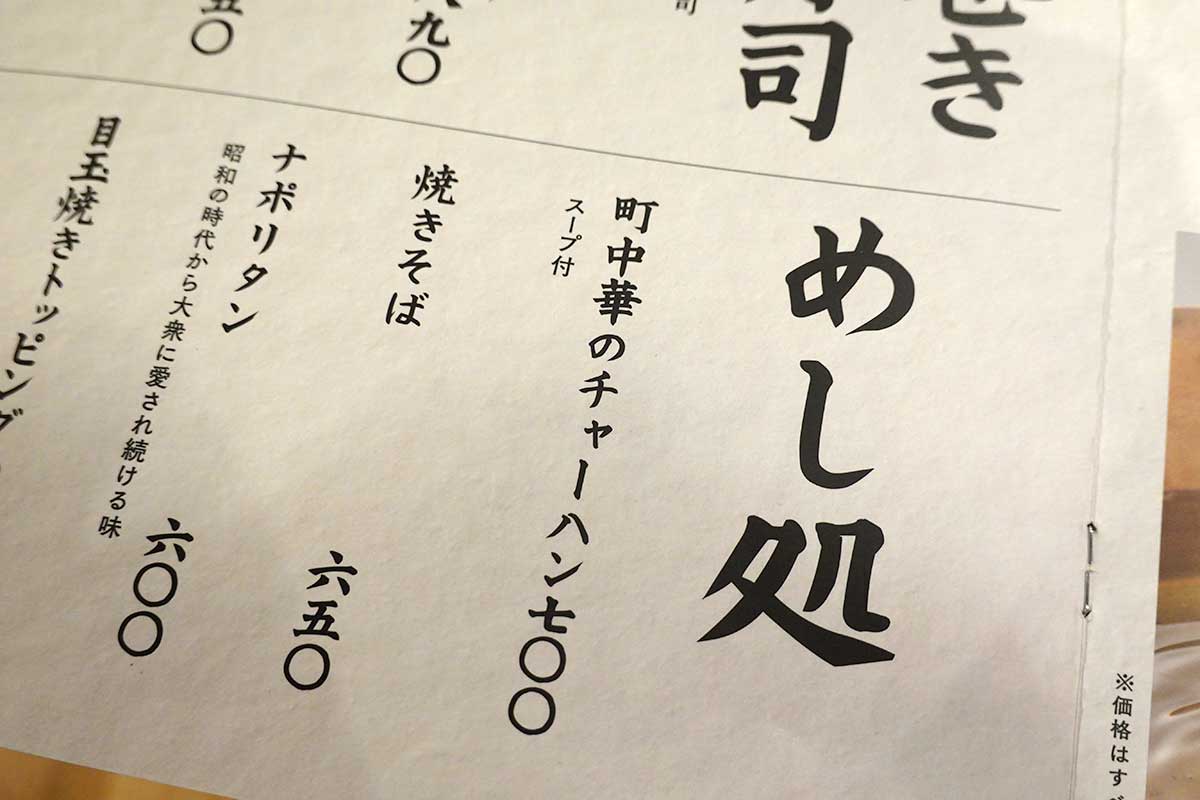 めし処
町中華のチャーハン 七〇〇
スープ付
焼きそば 六五〇
ナポリタン 六〇〇
昭和の時代から大衆に愛され続ける味
目玉焼きトッピング
巻き
司
九〇
五〇
司
※価格はすべ